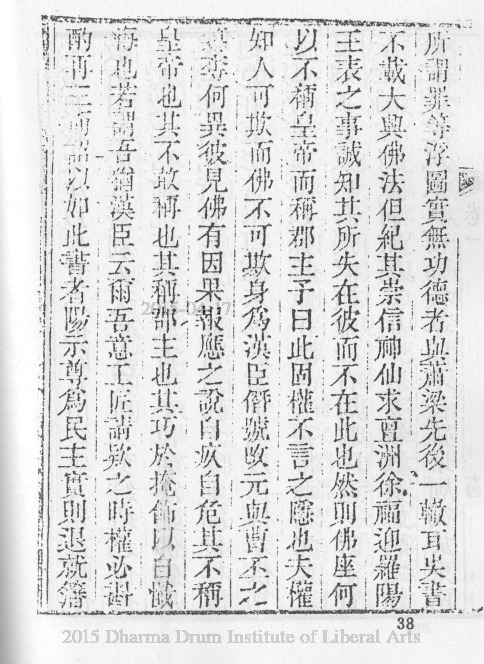 所謂罪等浮圖實無功德者與蕭梁先後一轍耳吳書
不載大興佛法但紀其崇信神仙求亶洲徐福迎羅陽
王表之事誠知其所失在彼而不在此也然則佛座何
以不稱皇帝而稱郡主予曰此固權不言之隱也夫權
知人可欺而佛不可欺身爲漢臣僭號改元與曹丕之
篡奪何異彼見佛有因果報應之說自疚自危其不稱
皇帝也其不敢稱也其稱郡主也其巧於掩飾以自懺
悔也若謂吾猶漢臣云爾吾意工匠請欵之時權必斟
酌再三而詔以如此書者陽示尊爲民主實則退就籓
38
2015 Dharma Drum Institute of Liberal Arts